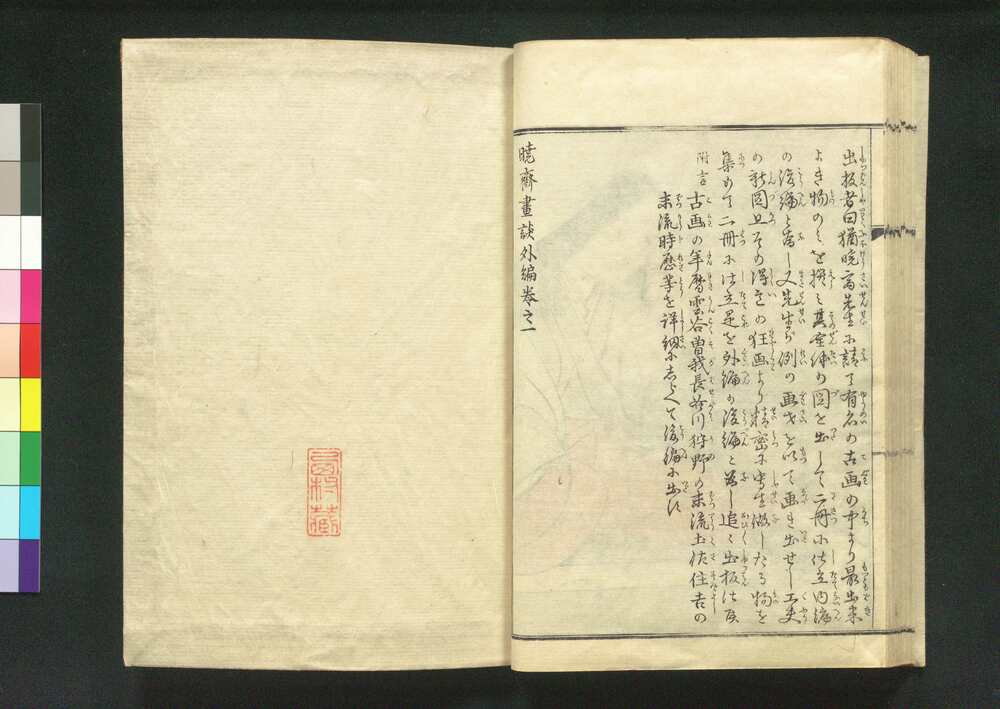 出板者曰猶暁斎先生に請て有名の古画の中より最出来
よき物のみを撰み其全体の図を出して二冊に仕立内編
の後編と為し又先生が例の画才を以て画き出せし工夫
の新図且その得意の狂画より精密に写生做したる物を
集めて二冊に仕立是を外編の後編と為し追々出板仕候
附言 古画の年暦雲谷曽我長谷川狩野の末流土佐住吉の
末流時暦等を詳細にしらべて後編に出す
暁齋畫談外編巻之一